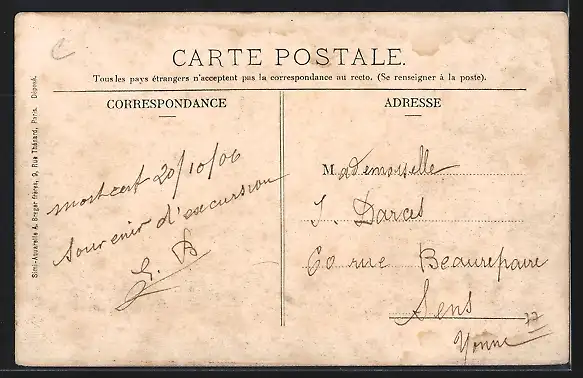 CARTE POSTALE.
Tous les pays étrangers n'acceptent pas la correspondance au recto. (Se renseigner à la poste).
CORRESPONDANCE
20/10/06
Souvenir d'excursion
ADRESSE
Mademoiselle
60 rue Beaurepaire
Sens
Yonne
77
Simi-Aquarelle A. Breger frères, 9, Rue Thénard, Paris. Déposé.